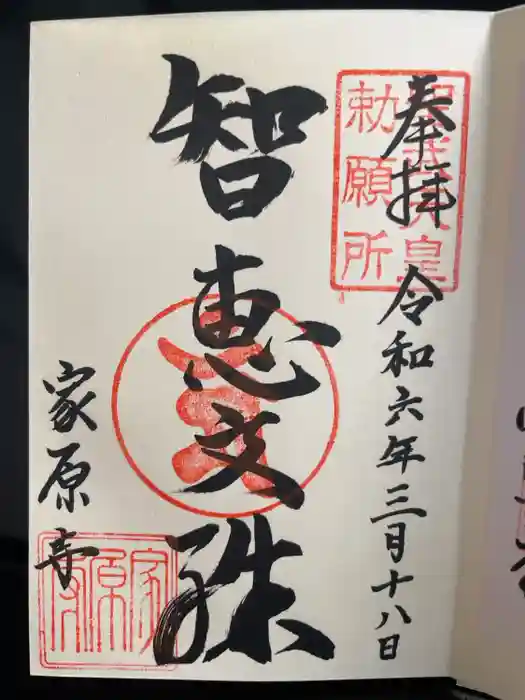 奉拝
令和六年三月十八日
勅願所
智恵文殊
家原寺
家原寺